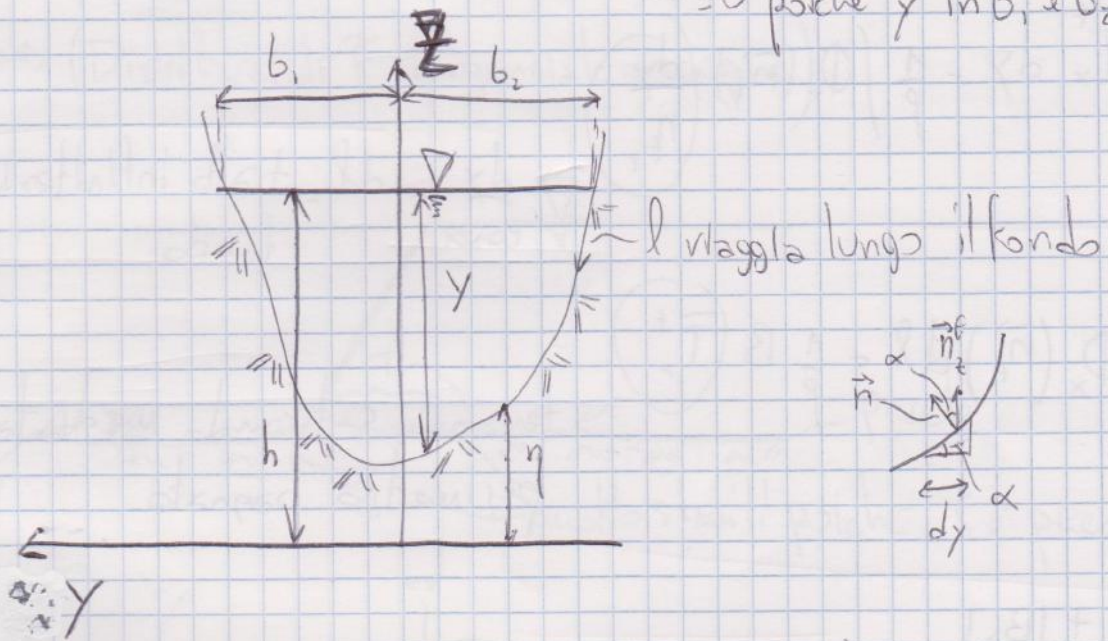 =0 poiché y in b₁ e b₂
z
b₁
b₂
l viaggia lungo il fondo
Y
h
η
α
n⃗
n⃗
α
dy
y